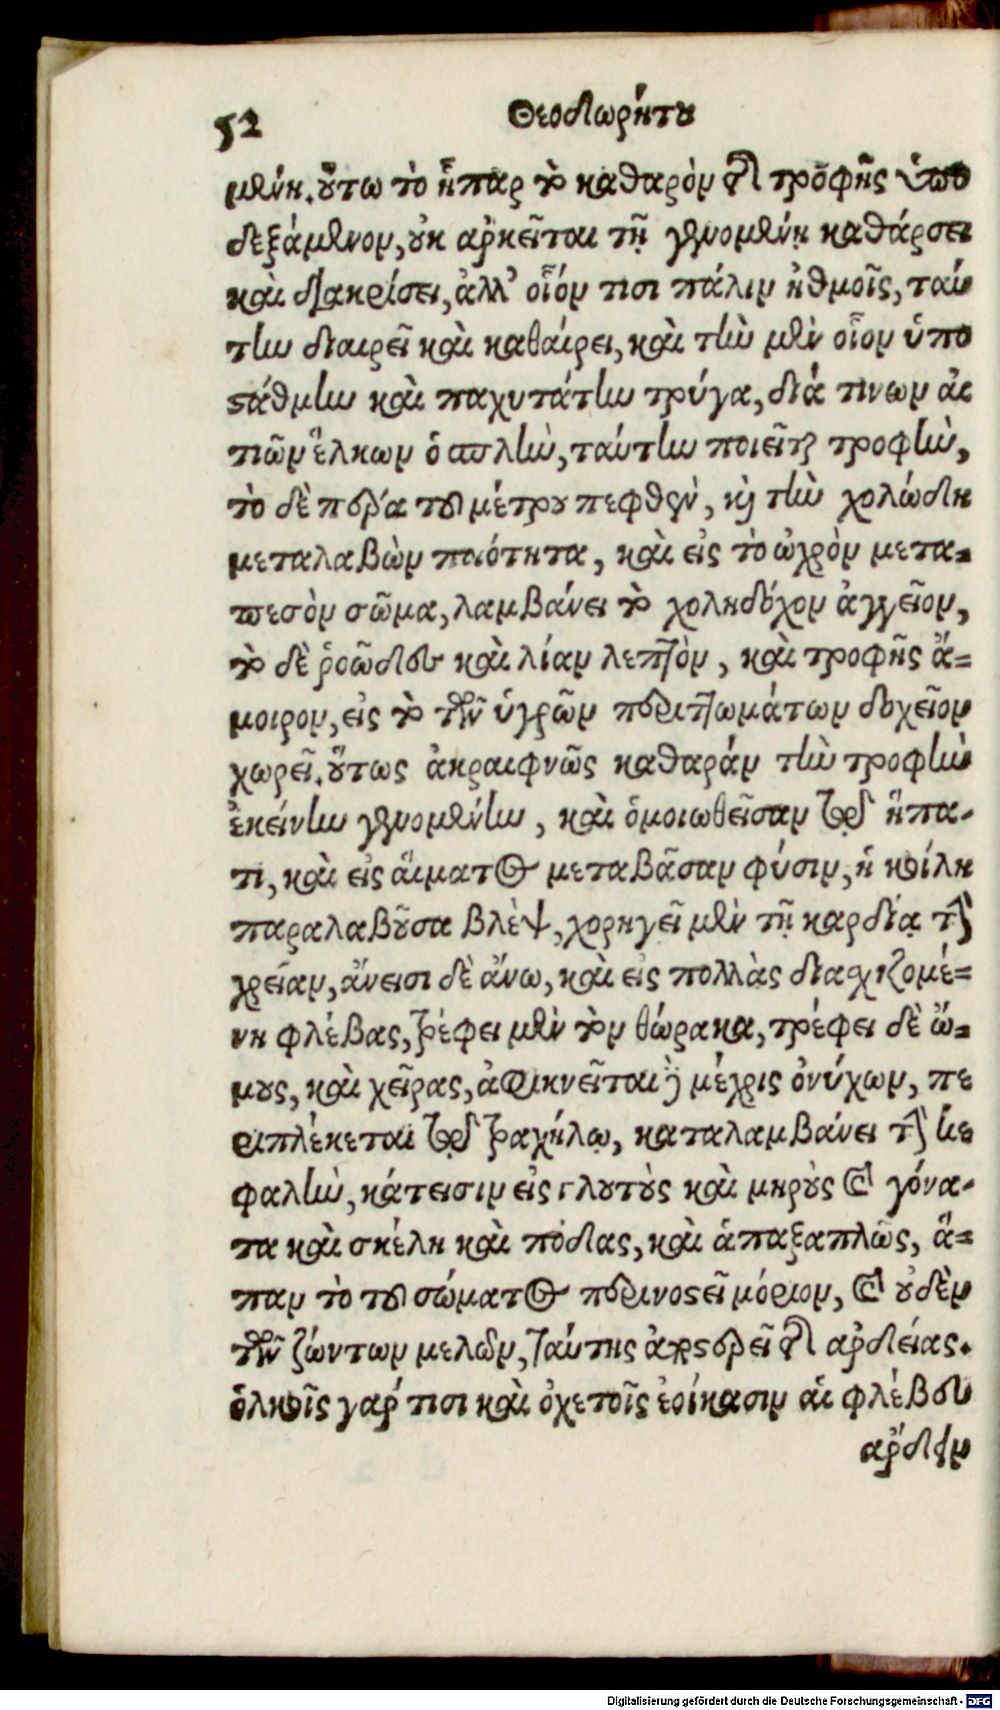 52
Θεοδωρήτου
μένη. οὕτω τὸ ἧπαρ τὸ καθαρὸν τῆς τροφῆς ὑπο
δεξάμενον, οὐκ ἀρκεῖται τῇ γενομένῃ καθάρσει
καὶ διακρίσει, ἀλλ' οἷόν τισι πάλιν ἠθμοῖς, ταύ
την διαιρεῖ καὶ καθαίρει, καὶ τὴν μὲν οἷον ὑπο
στάθμην καὶ παχυτάτην τρύγα, διά τινων ἀκ
τιῶν ἕλκων ὁ σπλὴν, ταύτην ποιεῖται τροφὴν,
τὸ δὲ πέρα τοῦ μέτρου πεφθὲν, καὶ τὴν χολώδη
μεταλαβὼν ποιότητα, καὶ εἰς τὸ ὠχρὸν μετα-
πεσὸν σῶμα, λαμβάνει τὸ χοληδόχον ἀγγεῖον,
τὸ δὲ ῥοῶδες καὶ λίαν λεπτὸν, καὶ τροφῆς ἄ-
μοιρον, εἰς τὸ τῶν ὑγρῶν περιττωμάτων δοχεῖον
χωρεῖ. οὕτως ἀκραιφνῶς καθαρὰν τὴν τροφὴν
ἐκείνην γενομένην, καὶ ὁμοιωθεῖσαν τῷ ἥπα-
τι, καὶ εἰς αἵματος μεταβᾶσαν φύσιν, ἡ κοίλη
παραλαβοῦσα βλὲψ, χορηγεῖ μὲν τῇ καρδίᾳ τὴν
χρείαν, ἄνεισι δὲ ἄνω, καὶ εἰς πολλὰς διασχιζομέ-
νη φλέβας, τρέφει μὲν τὸν θώρακα, τρέφει δὲ ὤ-
μους, καὶ χεῖρας, ἀφικνεῖται δὲ μέχρις ὀνύχων, πε
ριπλέκεται τῷ τραχήλῳ, καταλαμβάνει τὴν κε
φαλὴν, κάτεισιν εἰς γλουτοὺς καὶ μηροὺς καὶ γόνα-
τα καὶ σκέλη καὶ πόδας, καὶ ἁπαξαπλῶς, ἅ-
παν τὸ τοῦ σώματος περινοστεῖ μόριον, καὶ οὐδὲν
τῶν ζώντων μελῶν, ταύτης ἀποστερεῖ τῆς ἀρδείας.
ὁλκοῖς γάρ τισι καὶ ὀχετοῖς ἐοίκασιν αἱ φλέβες
ἄρδειν
Digitalisierung gefördert durch die Deutsche Forschungsgemeinschaft - DFG